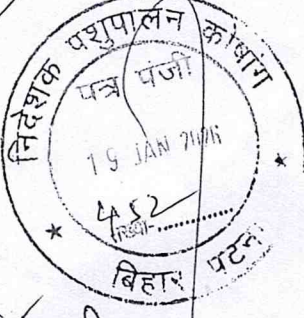 निदेशक पशुपालन कोषांग
पत्र पंजी
19 JAN 2026
452
बिहार पटना